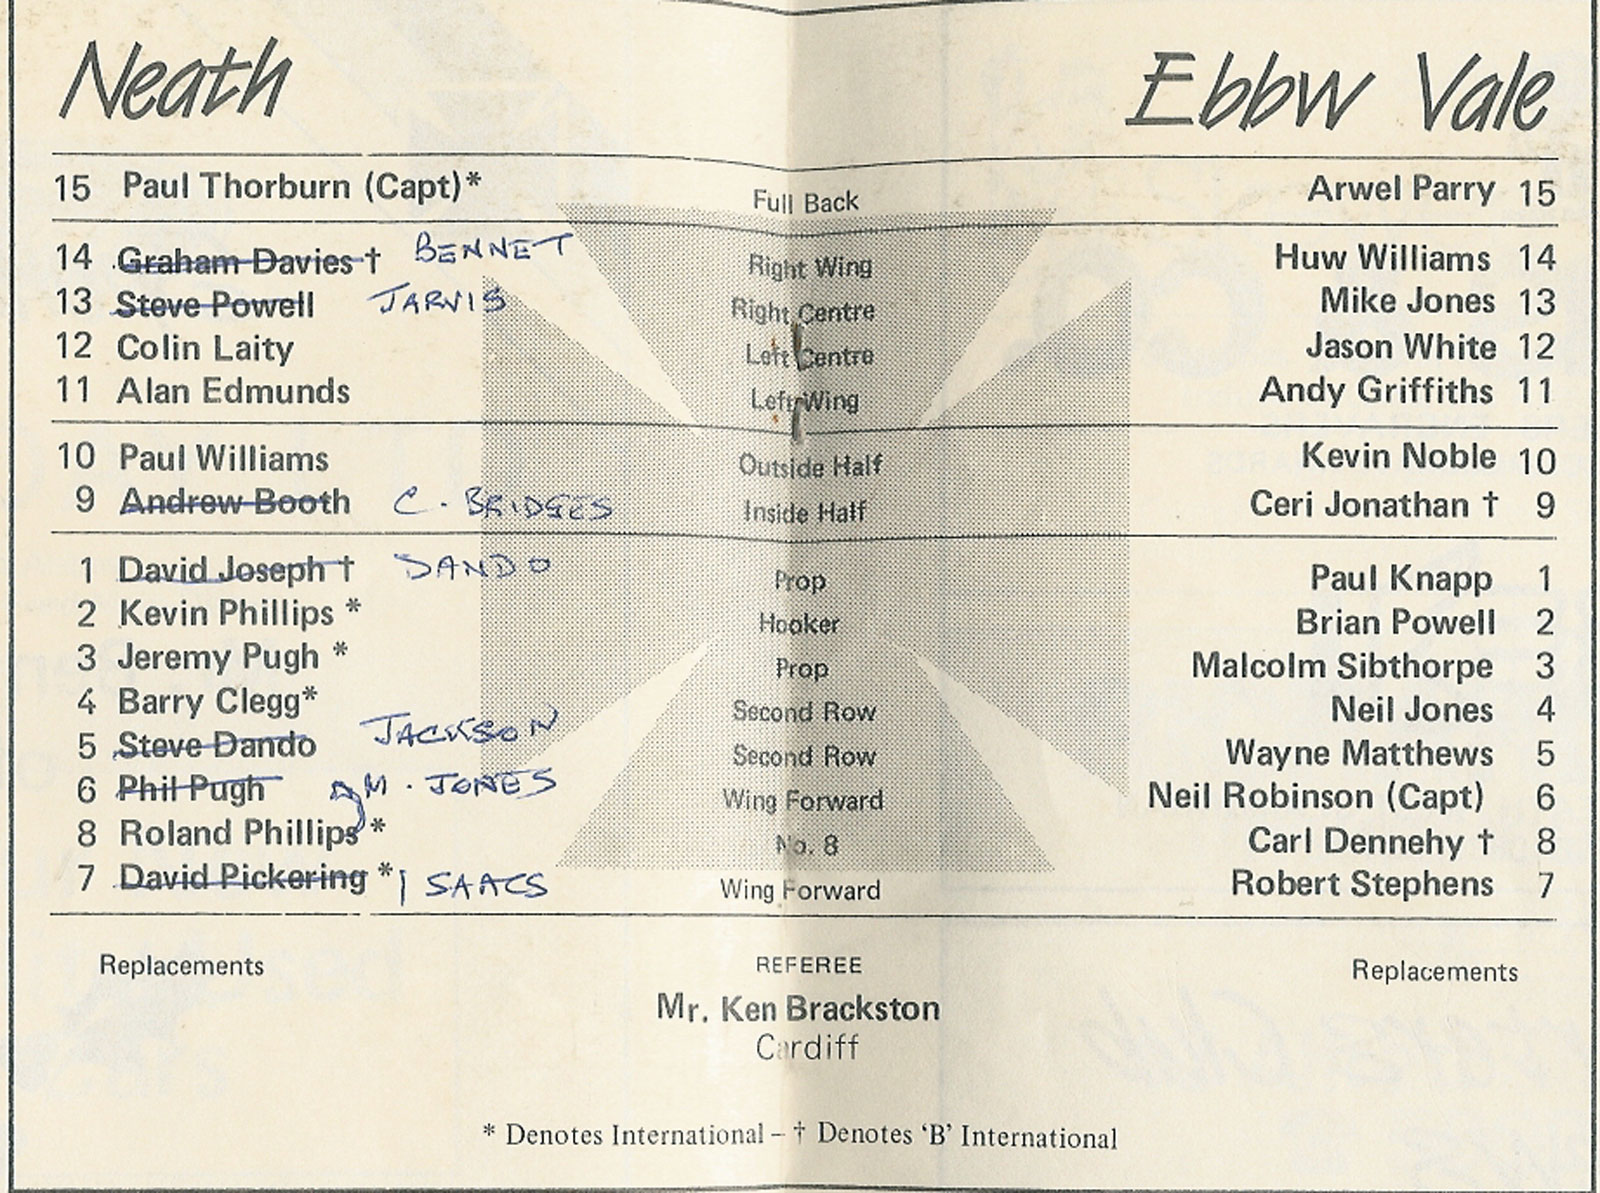 Neath Ebbw Vale
15 Paul Thorburn (Capt)* Full Back Arwel Parry 15
14 Graham Davies † BENNET Right Wing Huw Williams 14
13 Steve Powell JARVIS Right Centre Mike Jones 13
12 Colin Laity Left Centre Jason White 12
11 Alan Edmunds Left Wing Andy Griffiths 11
10 Paul Williams Outside Half Kevin Noble 10
9 Andrew Booth C. BRIDGES Inside Half Ceri Jonathan † 9
1 David Joseph † DANDO Prop Paul Knapp 1
2 Kevin Phillips * Hooker Brian Powell 2
3 Jeremy Pugh * Prop Malcolm Sibthorpe 3
4 Barry Clegg* Second Row Neil Jones 4
5 Steve Dando JACKSON Second Row Wayne Matthews 5
6 Phil Pugh M. JONES Wing Forward Neil Robinson (Capt) 6
8 Roland Phillips * No. 8 Carl Dennehy † 8
7 David Pickering * ISAACS Wing Forward Robert Stephens 7
Replacements REFEREE Replacements
Mr. Ken Brackston
Cardiff
* Denotes International – † Denotes 'B' International